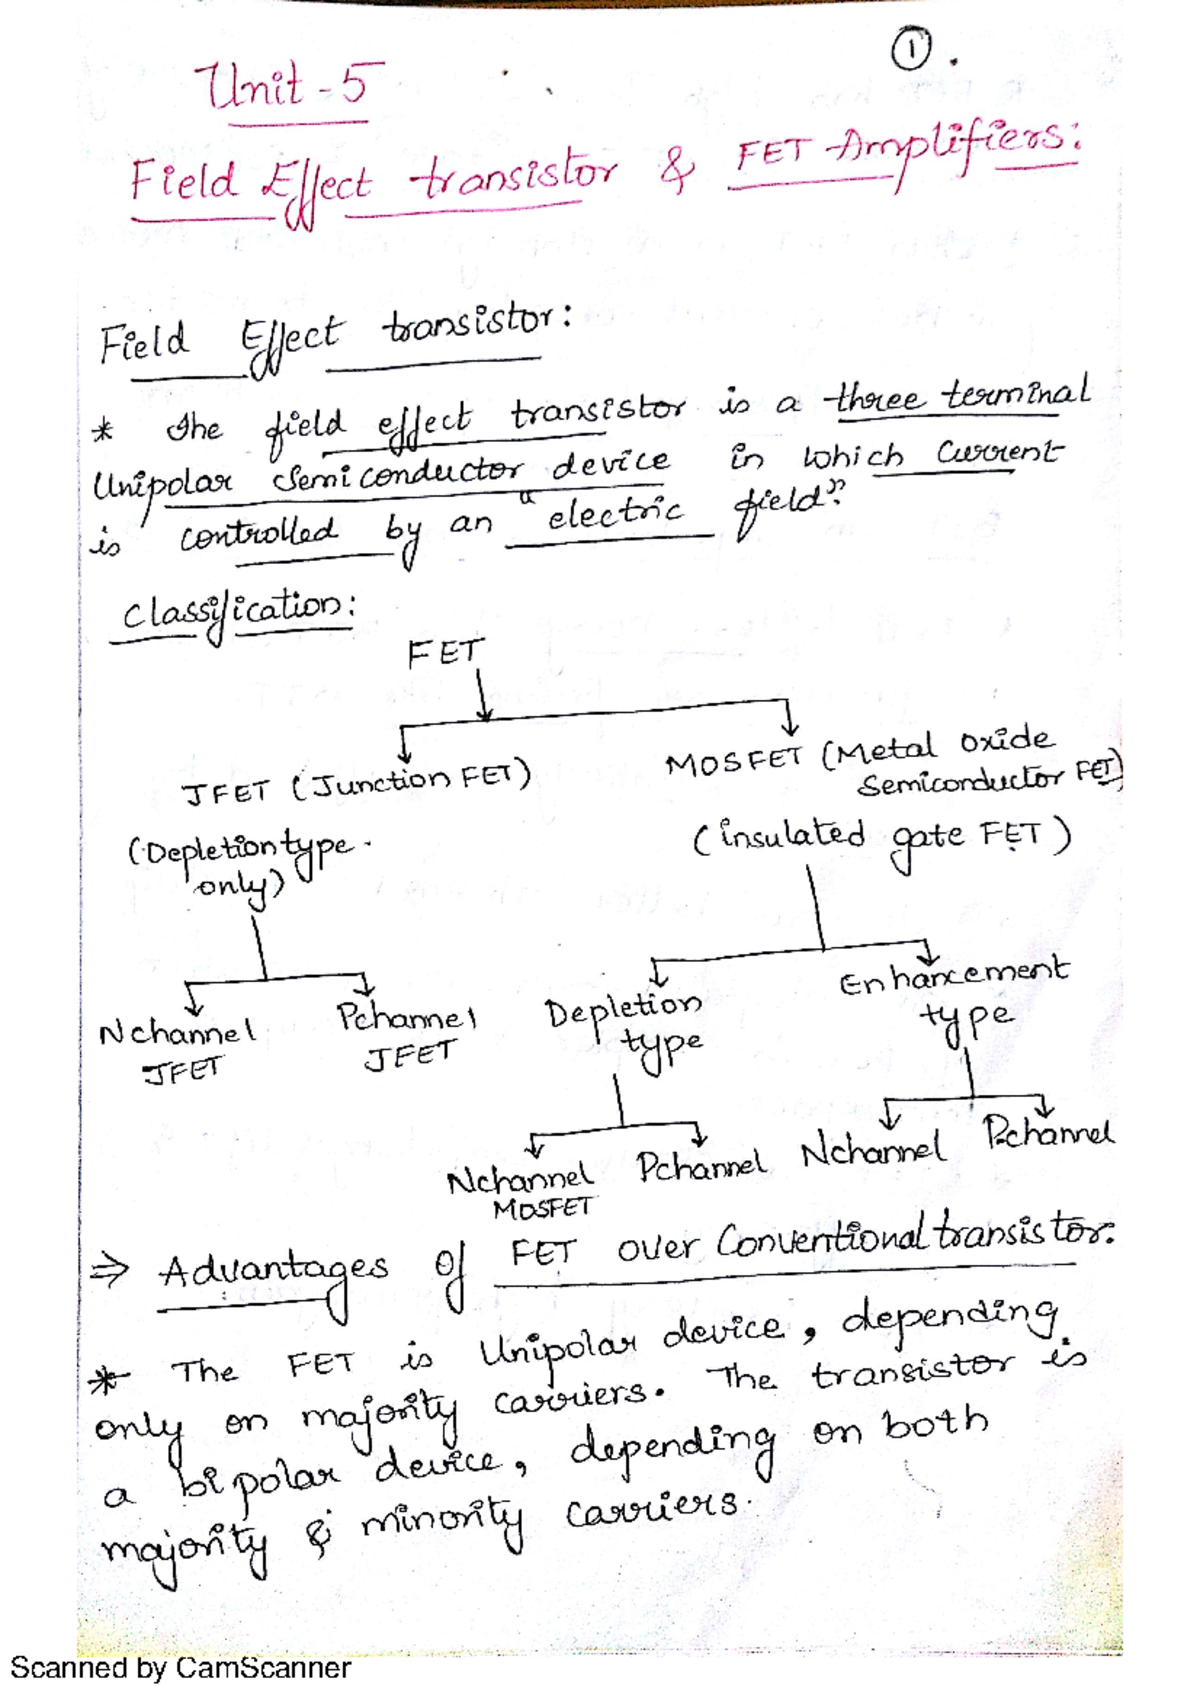 ①.
Unit-5
Field Effect transistor & FET Amplifiers:
Field Effect transistor:
* The field effect transistor is a three terminal
Unipolar Semiconductor device in which Current
is controlled by an "electric field".
Classification:
FET
JFET (Junction FET)
MOSFET (Metal Oxide
Semiconductor FET)
(Depletion type
only)
(insulated gate FET)
Nchannel
JFET
Pchannel
JFET
Depletion
type
Enhancement
type
Nchannel
MOSFET
Pchannel
Nchannel
Pchannel
⇒ Advantages of FET over Conventional transistor:
* The FET is Unipolar device, depending
only on majority carriers. The transistor is
a bipolar device, depending on both
majority & minority carriers.
Scanned by CamScanner